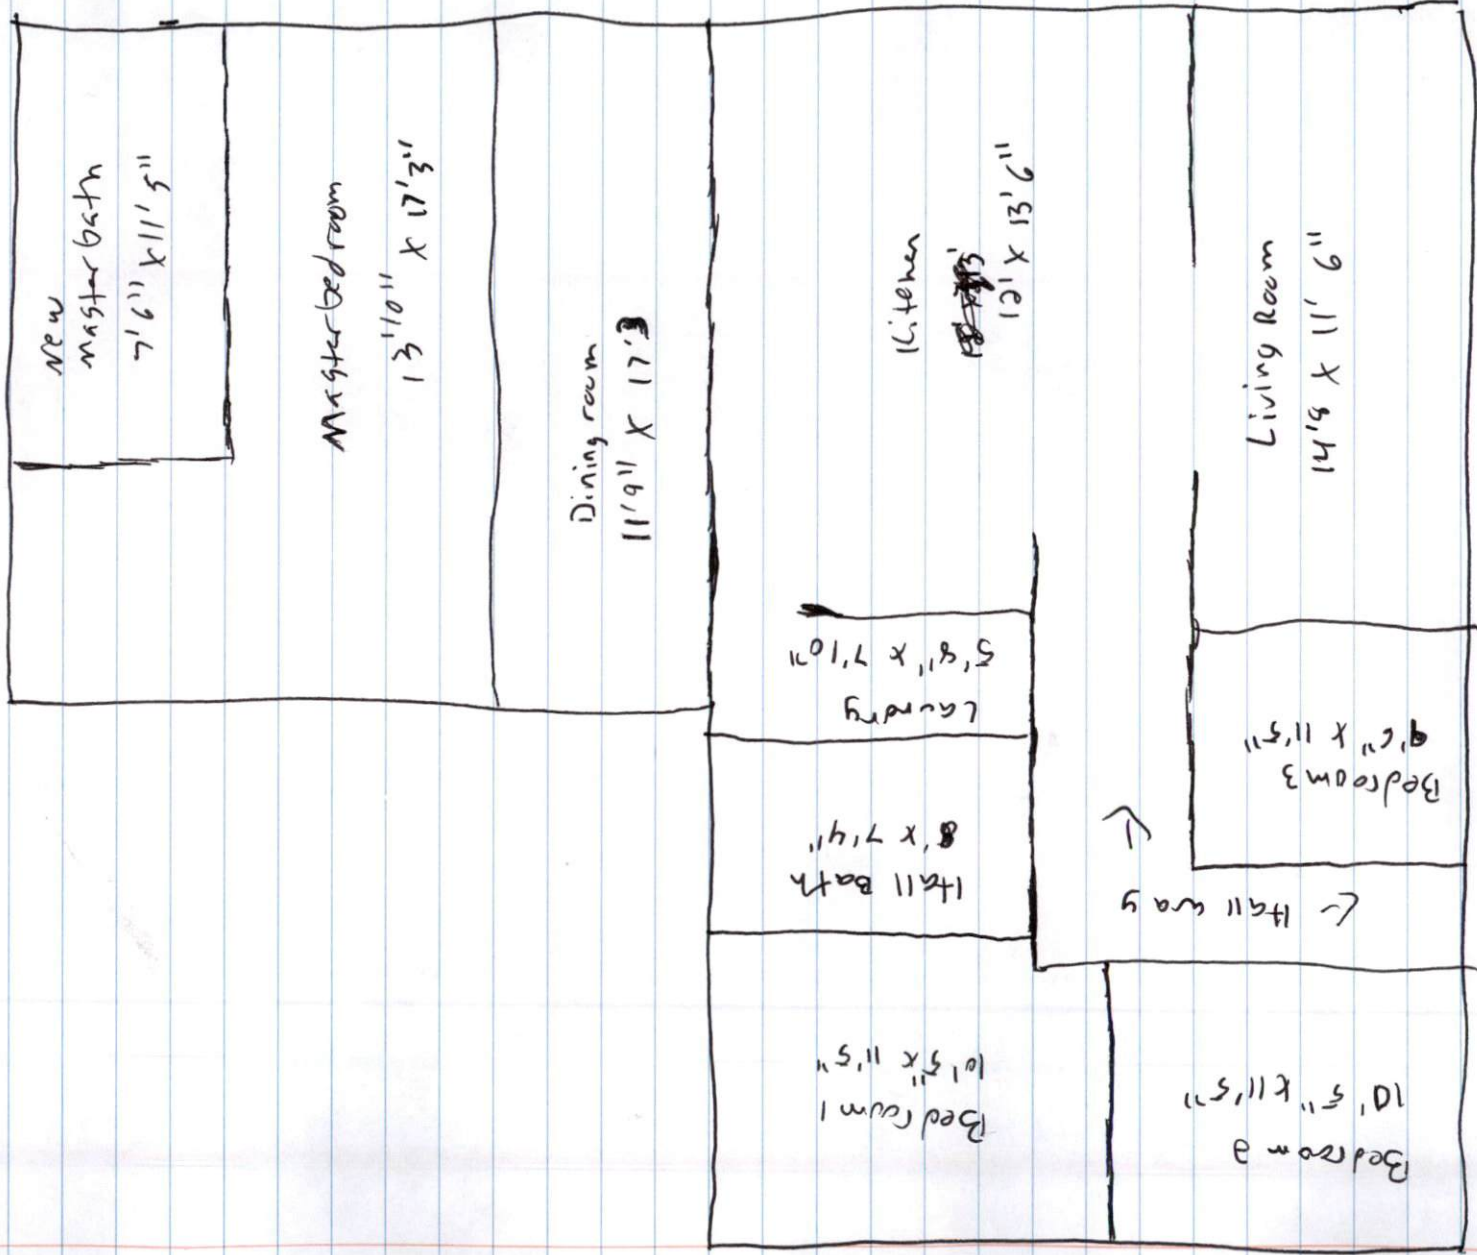 New
Master bath
7'6" x 11'5"
Master bedroom
13'10" x 17'3"
Dining room
11'9" x 17'3
Kitchen
12' x 13'6"
Living Room
14'5 x 11'6"
Laundry
5'8" x 7'10"
Hall Bath
8' x 7'4"
<- Hall way
Bedroom 3
9'6" x 11'5"
Bedroom 1
10'5" x 11'5"
Bedroom 2
10'5" x 11'5"